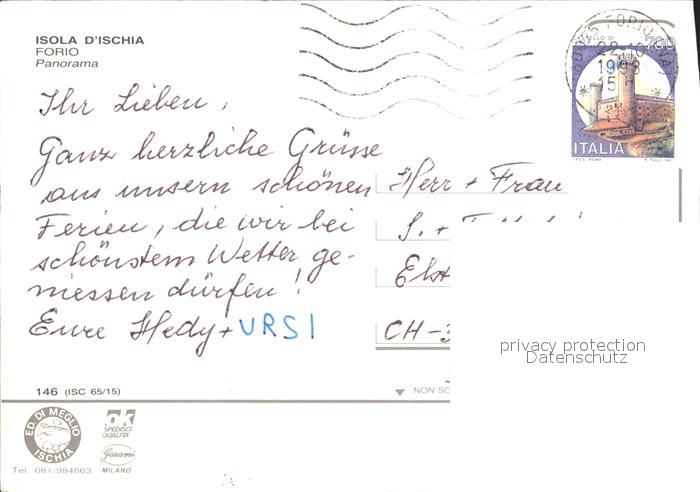 ISOLA D'ISCHIA
FORIO
Panorama
Ihr Lieben,
Ganz herzliche Grüsse
aus unsern schönen
Ferien, die wir bei
schönstem Wetter ge-
niessen dürfen!
Eure Hedy + URSI
Herr + Frau
S. +
CH-3
146 (ISC 65/15)
NON SC
ED. DI MEGLIO
ISCHIA
OK
SPEDISCI
QUALITÀ
Garami
MILANO
Tel. 081/984663
FORIO
22-10
1998
15
CASTELLO DI
700
ITALIA
privacy protection
Datenschutz